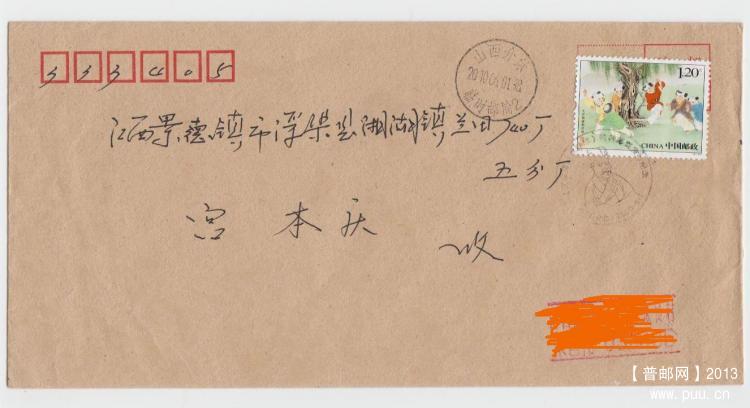 333405
山西介休
2010.06.01.
临时邮局2
1.20
CHINA 中国邮政
江西景德镇市浮梁县湘湖镇兰田740厂
五分厂
宫本庆 收
【普邮网】2013
www.puu.cn